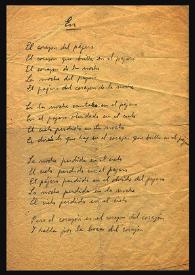 En
El corazón del pájaro
El corazón que brilla en el pájaro
El corazón de la noche
La noche del pájaro
El pájaro del corazón de la noche
Si la noche cantara en el pájaro
En el pájaro olvidado en el cielo
El cielo perdido en la noche
Te diría lo que hay en el corazón que brilla en el pájaro
La noche perdida en el cielo
El cielo perdido en el pájaro
El pájaro perdido en el olvido del pájaro
La noche perdida en la noche
El cielo perdido en el cielo
Pero el corazón es el corazón del corazón
Y habla por la boca del corazón